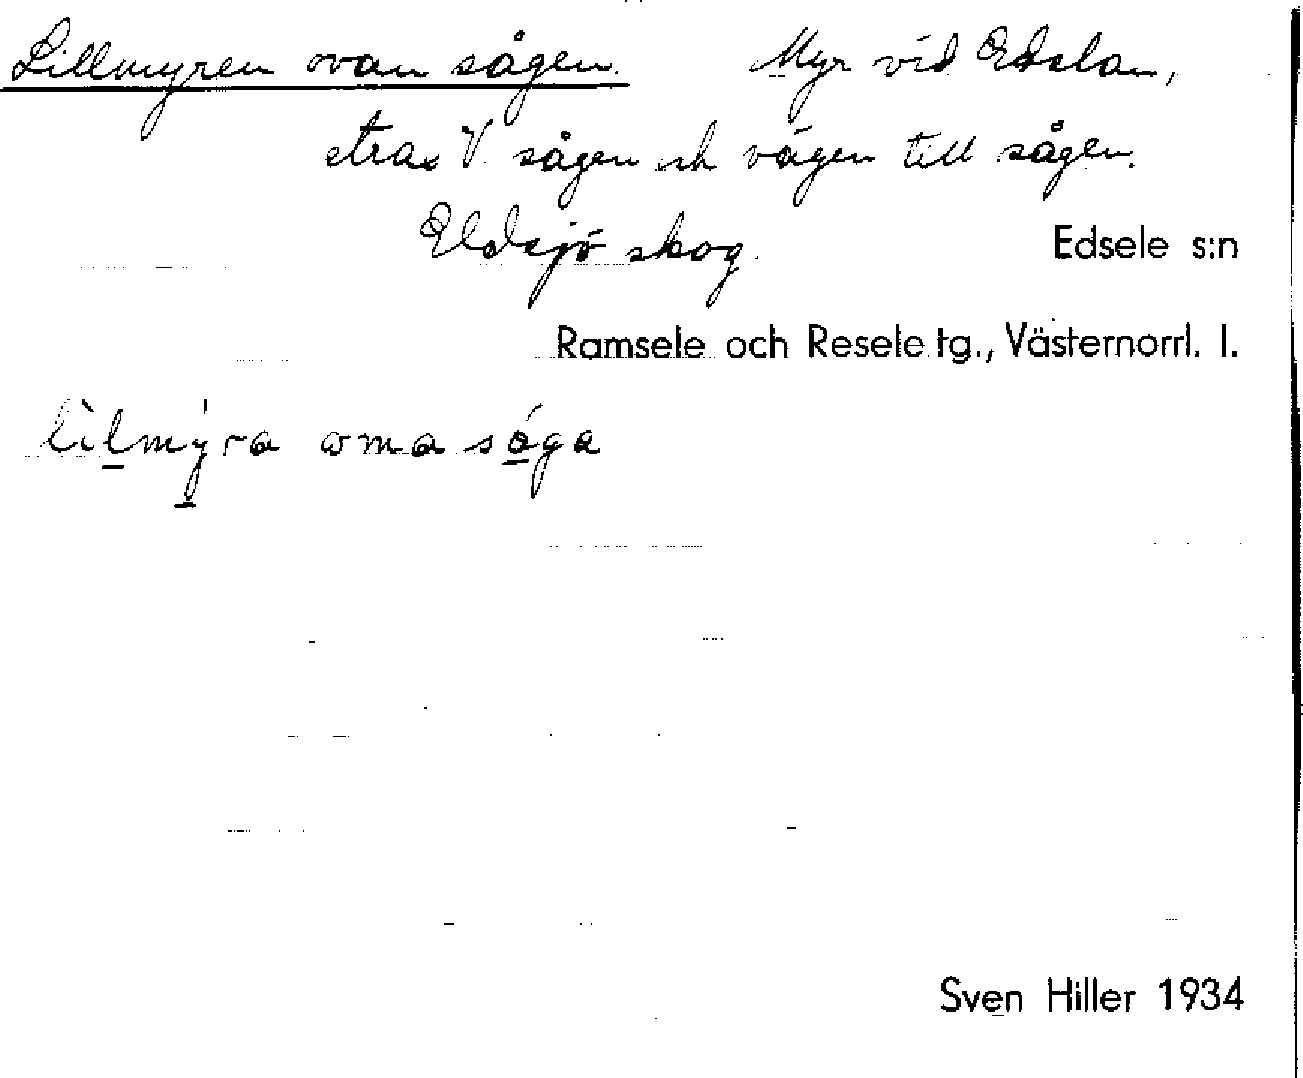 Lillmyren ovan sågen. Myr vid Edslan,
strax V. sågen och vägen till sågen.
Eldsjö skog.
Edsele s:n
Ramsele och Resele tg., Västernorrl. l.
lìlmýra oma sóga
Sven Hiller 1934